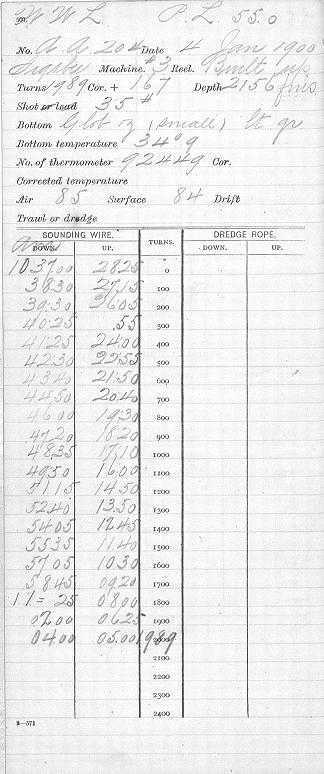 W W L P. L 55.0
No. A. A 204 Date 4 Jan 1900
Sigsbee Machine. #3 Reel. Built up
Turns 1989 Cor. + 167 Depth 2156 fms
Shot or lead 35 #
Bottom Glob oz (small) lt gr
Bottom temperature 34°9
No. of thermometer 92449 Cor.
Corrected temperature
Air 85 Surface 84 Drift
Trawl or dredge
SOUNDING WIRE. TURNS. DREDGE ROPE,
DOWN. UP. DOWN. UP.
10 37 00 28 25 0
38 30 27 15 100
39 30 26 05 200
40 25 .55 300
41 25 24 00 400
42 30 22 55 500
43 40 21 50 600
44 50 20 40 700
46 00 19 30 800
47 20 18 20 900
48 35 17 10 1000
49 50 16 00 1100
51 15 14 50 1200
52 40 13 50 1300
54 05 12 45 1400
55 35 11 40 1500
57 05 10 30 1600
58 45 09 20 1700
11 = 25 08 00 1800
02 00 06 25 1900
04 00 05.00 1989
2100
2200
2300
2400
2—571